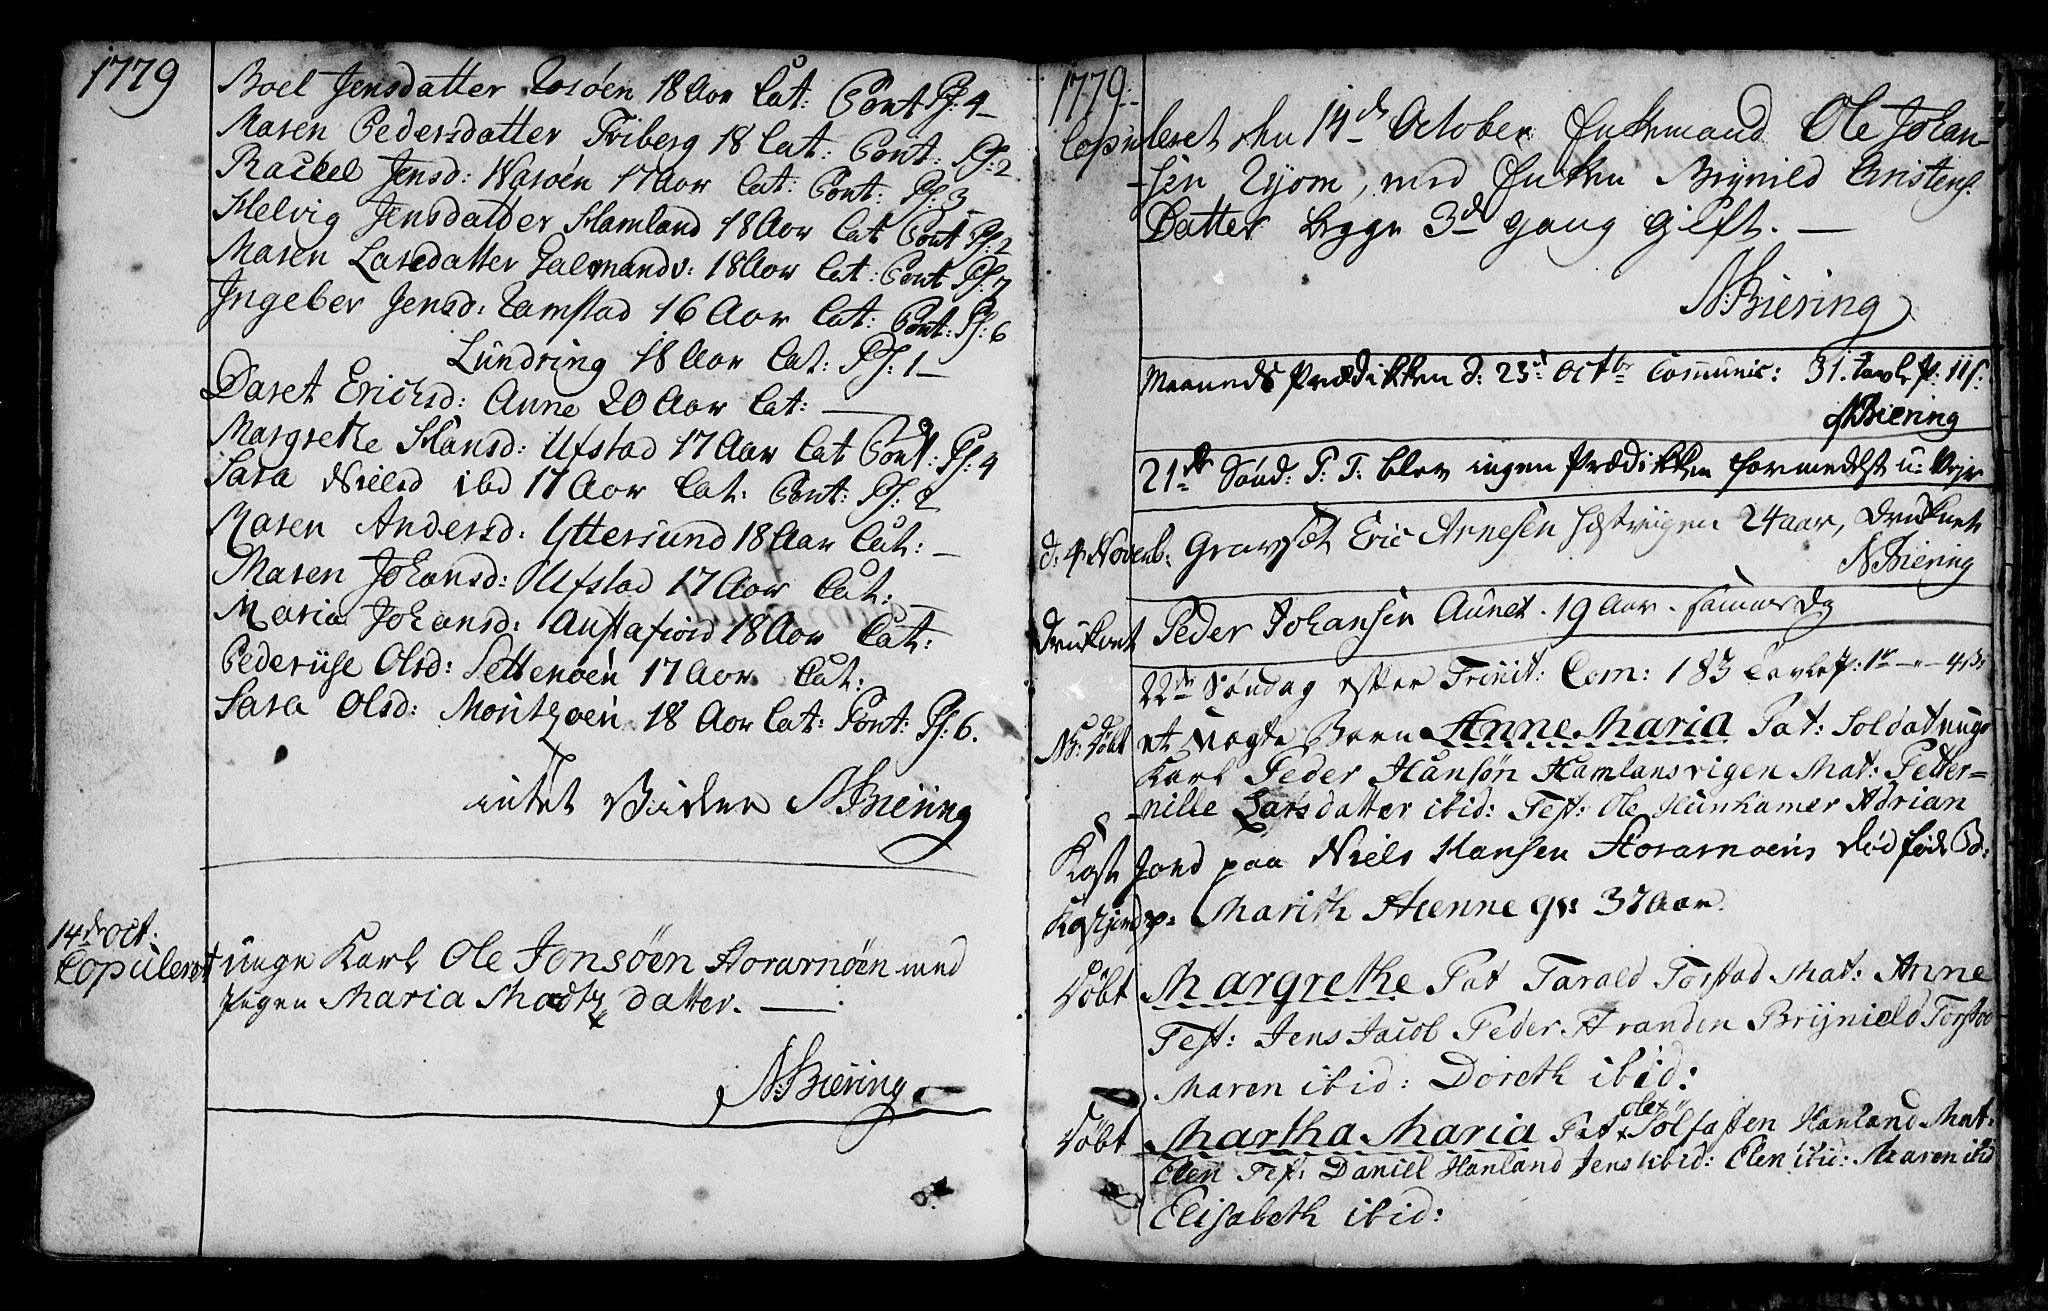 1779
Boel Jensdatter Rosöen 18 Aar Cat: Cont Ps: 4
Maren Pedersdatter Friberg 18 Cat: Cont: Ps: 2
Rachel Jensd: Warøen 17 Aar Cat: Cont: Ps: 3
Helvig Jensdatter Hamland 18 Aar Cat Cont Ps: 2
Maren Larsdatter 18 Aar Cat: Cont Ps: 7
Ingeber Jensd: Ramstad 16 Aar Cat: Cont: Ps: 6
Lundring 18 Aar Cat: Ps: 1
Daret Erichsd: Aune 20 Aar Cat:
Margrethe Hansd: Ufstad 17 Aar Cat Cont: Ps: 4
Sara Nielsd ibd 17 Aar Cat: Cont: Ps: 2
Maren Andersd: Yttersund 18 Aar Cat:
Maren Johansd: Ufstad 17 Aar Cat:
Maria Johansd: Austafiord 18 Aar Cat:
Olsd: Settenøen 17 Aar Cat:
Sara Olsd: Moritzøen 18 Aar Cat: Cont: Ps: 6.
intet Videre N. Biering
14de Oct:
Copuleret unge Karl Ole Jonsöen Horarnöen med
Pigen Maria Madtz datter.
N: Biering
1779
Copuleret den 14de October Enkemand Ole Johan-
sen, med Enken Brynild Cristens
Datter begge 3de gang gift.
N: Biering
Maaneds Prædikken d: 23d Octbr Communic: 31. Tavle P: 11 s.
N Biering
21de Sønd: P. T. blev ingen Prædikken formedelst u: Vejr
d: 4 Novemb: Gravsæt Eric Arnesen 24 aar, Druknet
N Biering
Druknet Peder Johansen Aunet. 19 Aar. samme Dg
22de Söndag efter Trinit: Com: 183 Tavle P: 1
NB: Döbt et Barn Anne Maria Pat: Soldat unge
Karl Peder Hansön Hamlansvigen Mat: Petter=
nille Larsdatter ibid: Test: Ole Adrian
Kast Jord paa Niels Hansen Horarnøens dødföde B:
Kast Jord p: Marith Aenne gl: 37 Aar.
Döbt Margrethe Pat Tarald Torstad Mat: Anne
Test: Jens Jacob Peder Aranden Brijnield Torstad
Maren ibid: Doreth ibid:
Döbt Martha Maria Pat Ole Tölfasten Hanland Mat:
Elen Test: Daniel Hanland Jens ibid: Elen ibid: Maren ibid
Elisabeth ibid: